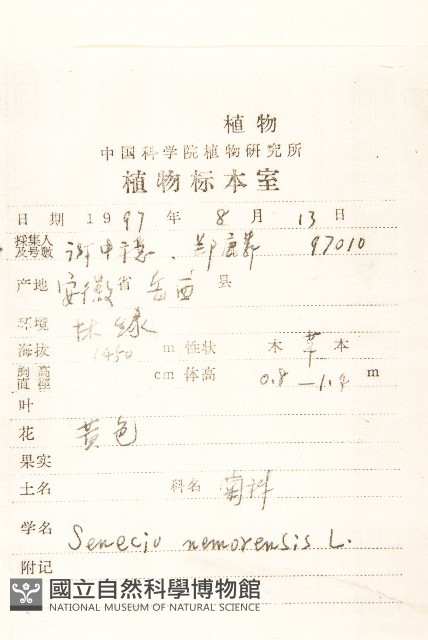 植物
中国科学院植物研究所
植物标本室
日期 1997 年 8 月 13 日
採集人及号數 谢中稳、郑 97010
产地 安徽省 岳西 县
环境 林缘
海拔 1450 m 性状 木 草 本
胸高直徑 cm 体高 0.8—1.4 m
叶
花 黄色
果实
土名 科名 菊科
学名 Senecio nemorensis L.
附记
國立自然科學博物館
NATIONAL MUSEUM OF NATURAL SCIENCE